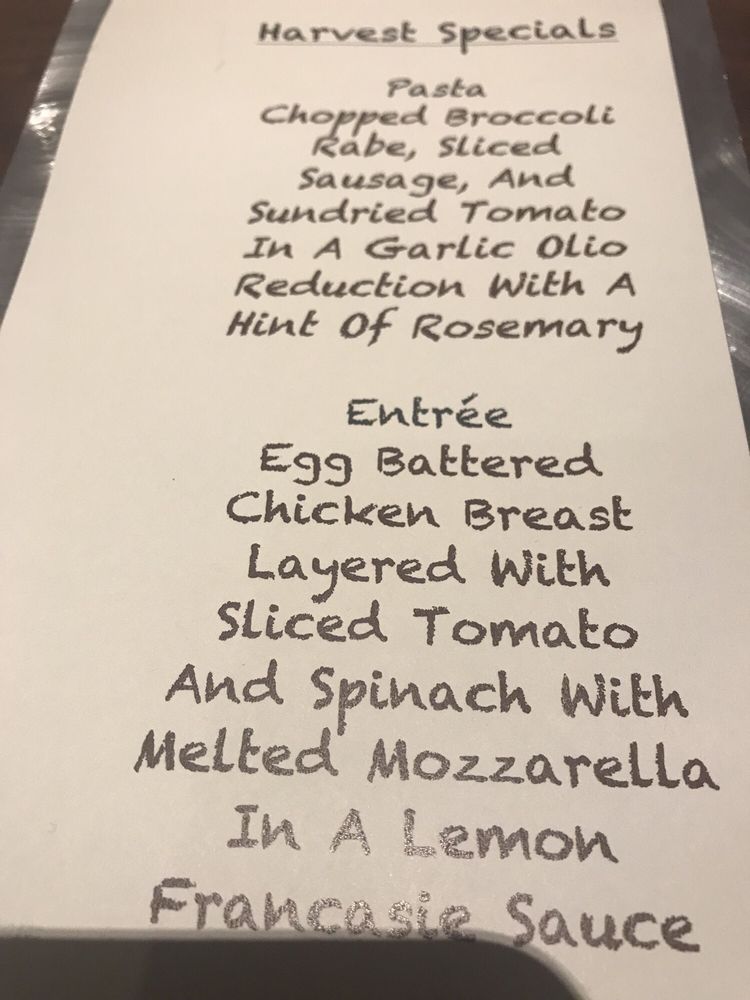 Harvest Specials
Pasta
Chopped Broccoli
Rabe, Sliced
Sausage, And
Sundried Tomato
In A Garlic Olio
Reduction With A
Hint Of Rosemary
Entrée
Egg Battered
Chicken Breast
Layered With
Sliced Tomato
And Spinach With
Melted Mozzarella
In A Lemon
Francasie Sauce